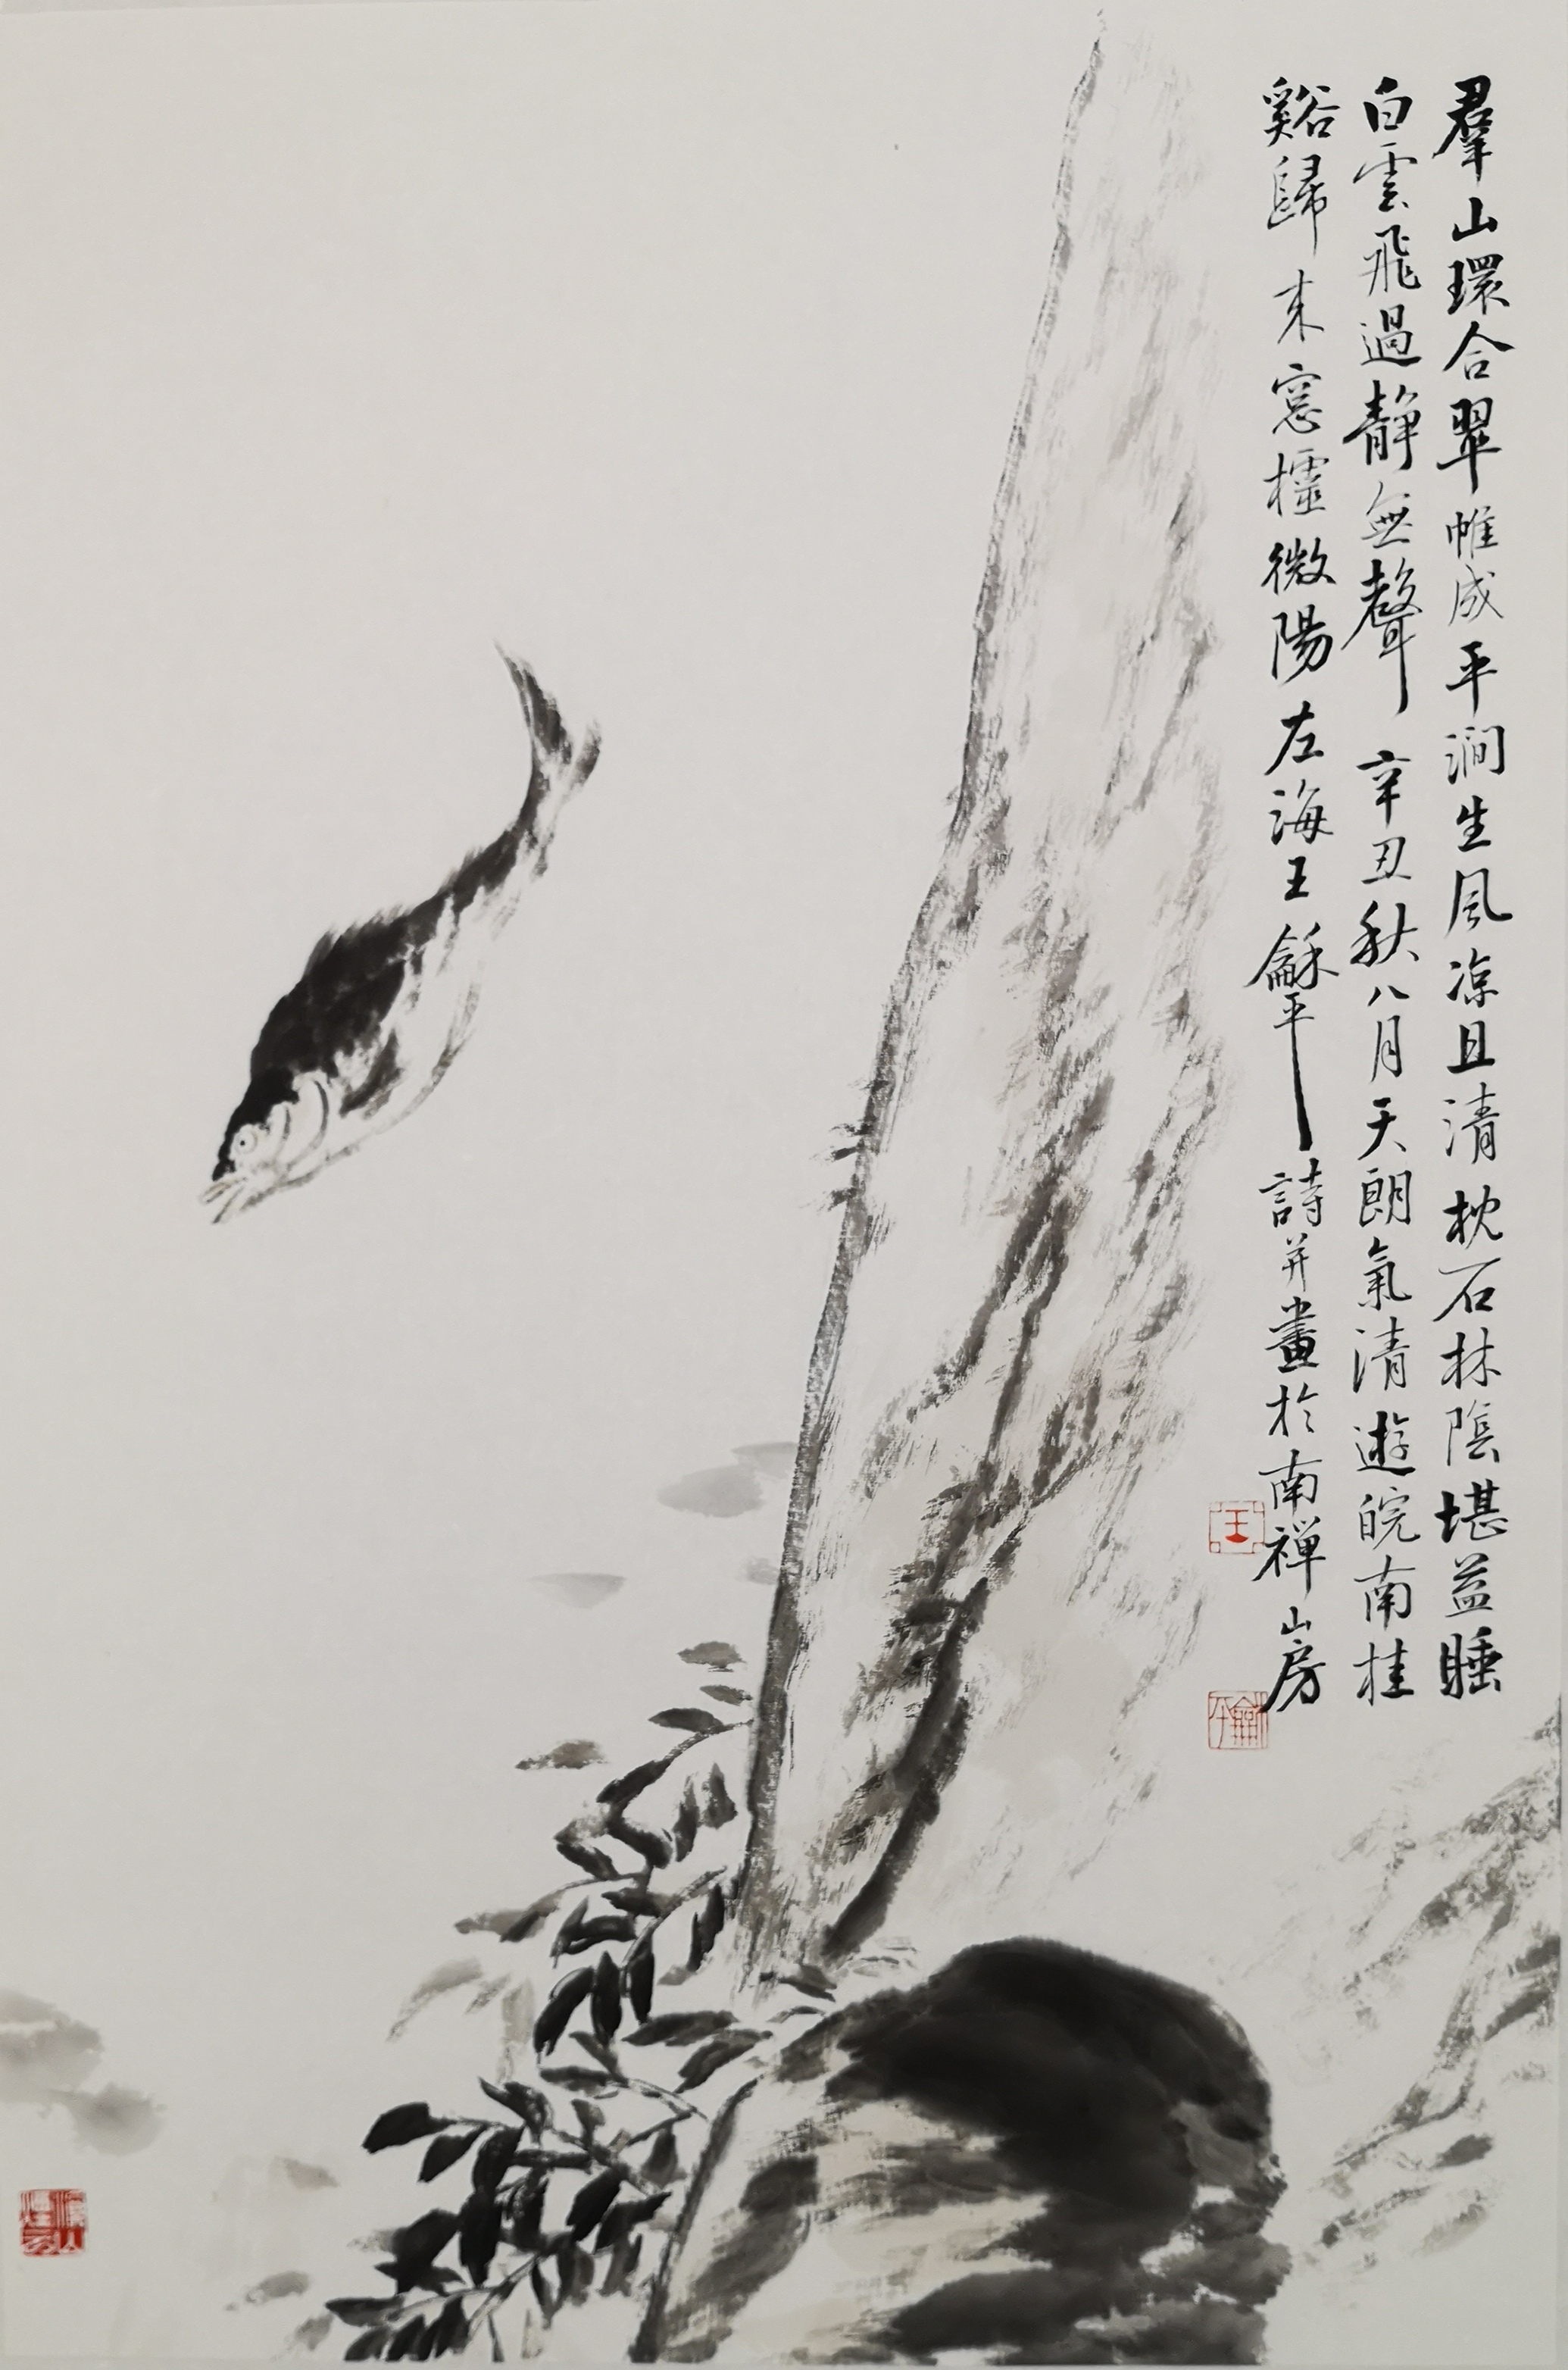 羣山環合翠帷成平澗生風涼且清枕石林陰堪益睡
白雲飛過靜無聲辛丑秋八月天朗氣清遊皖南桂
谿歸來窓櫺微陽左海王龢平詩并畫於南禪山房
王
龢平